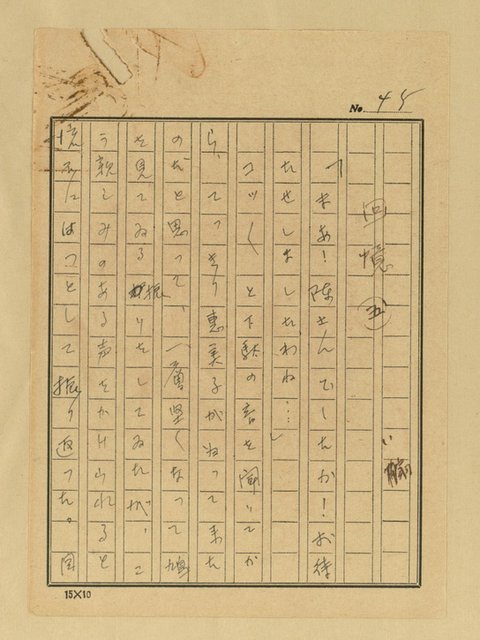 No. 45
回憶 (五)
「まあ！陳さんでしたか！お待
たせしましたわね…」
コツ〱と下駄の音を聞いてか
ら、てっきり恵美子がねって来た
のだと思って、一層堅くなって鳩
を見てゐる振りをしてゐたが、こ
う親しみのある声をかけられると
憶にはっとして振り返った。国
15×10